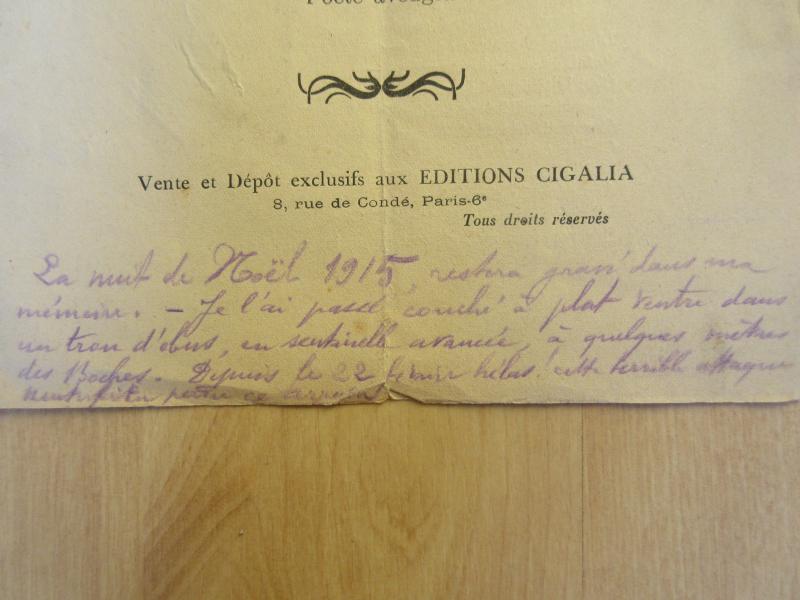 Vente et Dépôt exclusifs aux EDITIONS CIGALIA
8, rue de Condé, Paris-6e
Tous droits réservés
La nuit de Noël 1915, restera gravé dans ma
mémoire. – Je l'ai passé couché à plat ventre dans
un trou d'obus, en sentinelle avancée, à quelques mètres
des Boches. Depuis le 22 février hélas! cette terrible attaque